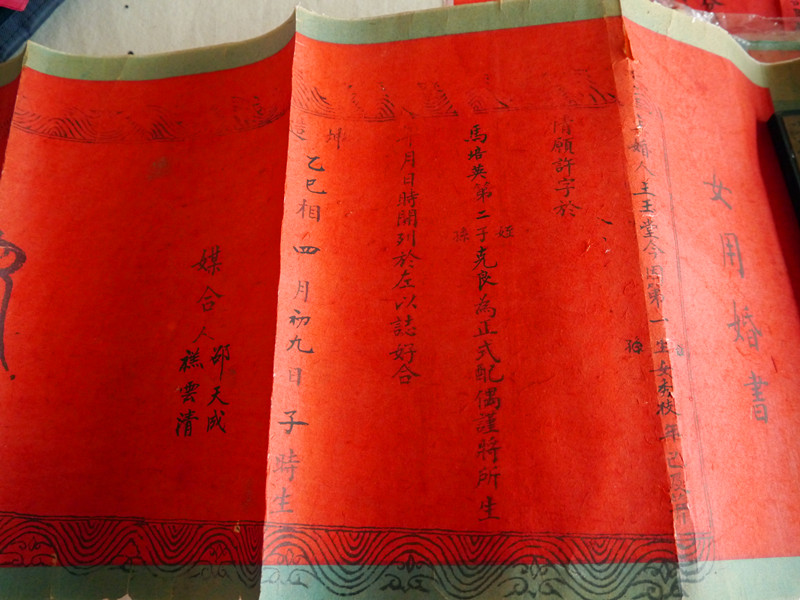 女用婚書
婚人主王堂今因第一生女秀枝年已長
孫
情願許字於
馬培英第二子克良為正式配偶謹將所生
孫 姪
年月日時開列於左以誌好合
坤造
乙巳相四月初九日子時生
媒合人
邵天成
禚雲清